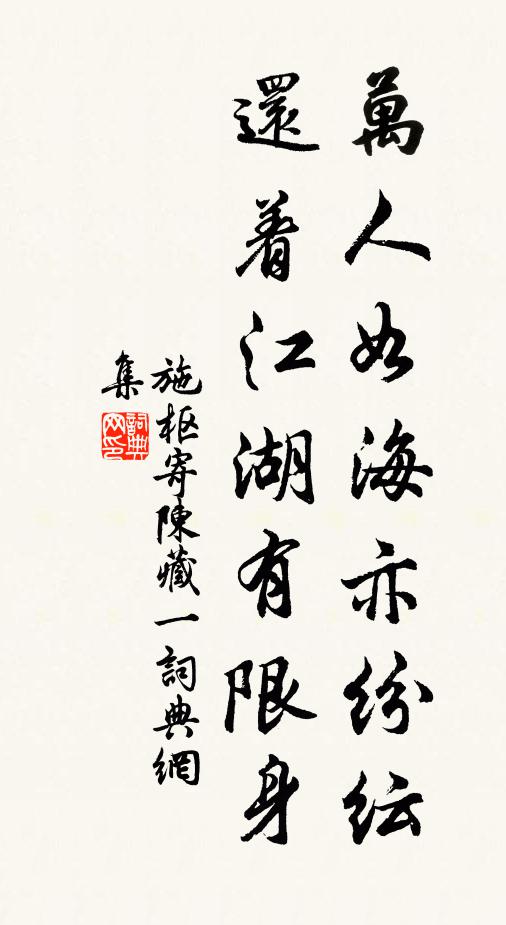 萬人如海亦紛紜
還着江湖有限身
施枢寄陳藏一詞典網
集
詞典
网印